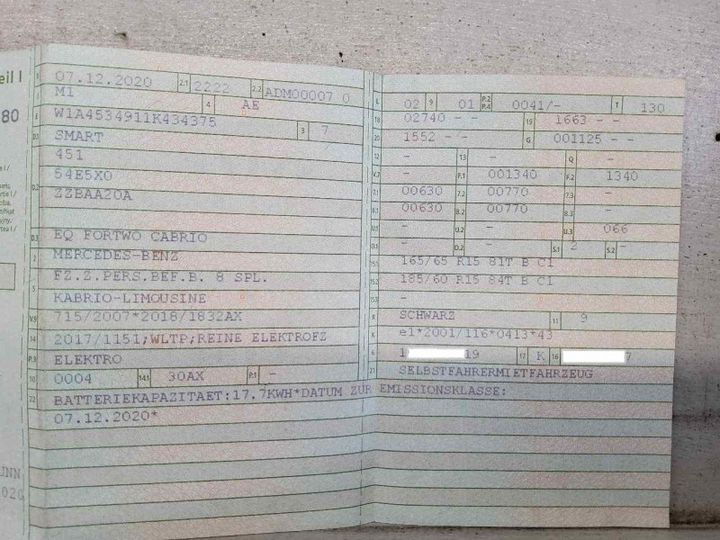 eil I
80
UNN
020
B 07.12.2020 2.1 2222 2.2 ADM00007 0
J M1 4 AE
E W1A4534911K434375 3 7
D.1 SMART
451
54E5X0
D.2 ZZBAA20A
D.3 EQ FORTWO CABRIO
2 MERCEDES-BENZ
FZ.Z.PERS.BEF.B. 8 SPL.
5 KABRIO-LIMOUSINE
V.9 715/2007*2018/1832AX
14 2017/1151;WLTP;REINE ELEKTROFZ
P.3 ELEKTRO
10 0004 14.1 30AX P.1 -
22 BATTERIEKAPAZITAET:17.7KWH*DATUM ZUR EMISSIONSKLASSE:
07.12.2020*
L 02 9 01 P.2 P.4 0041/- T 130
18 02740 - - 19 1663 - -
20 1552 - - G 001125 - -
12 - 13 - Q -
V.7 - F.1 001340 F.2 1340
7.1 00630 7.2 00770 7.3 -
8.1 00630 8.2 00770 8.3 -
U.1 - U.2 - U.3 066
O.1 - O.2 - S.1 2 S.2 -
15.1 165/65 R15 81T B C1
15.2 185/60 R15 84T B C1
15.3 -
R SCHWARZ 11 9
K e1*2001/116*0413*43
6 1 19 17 K 16 7
21 SELBSTFAHRERMIETFAHRZEUG